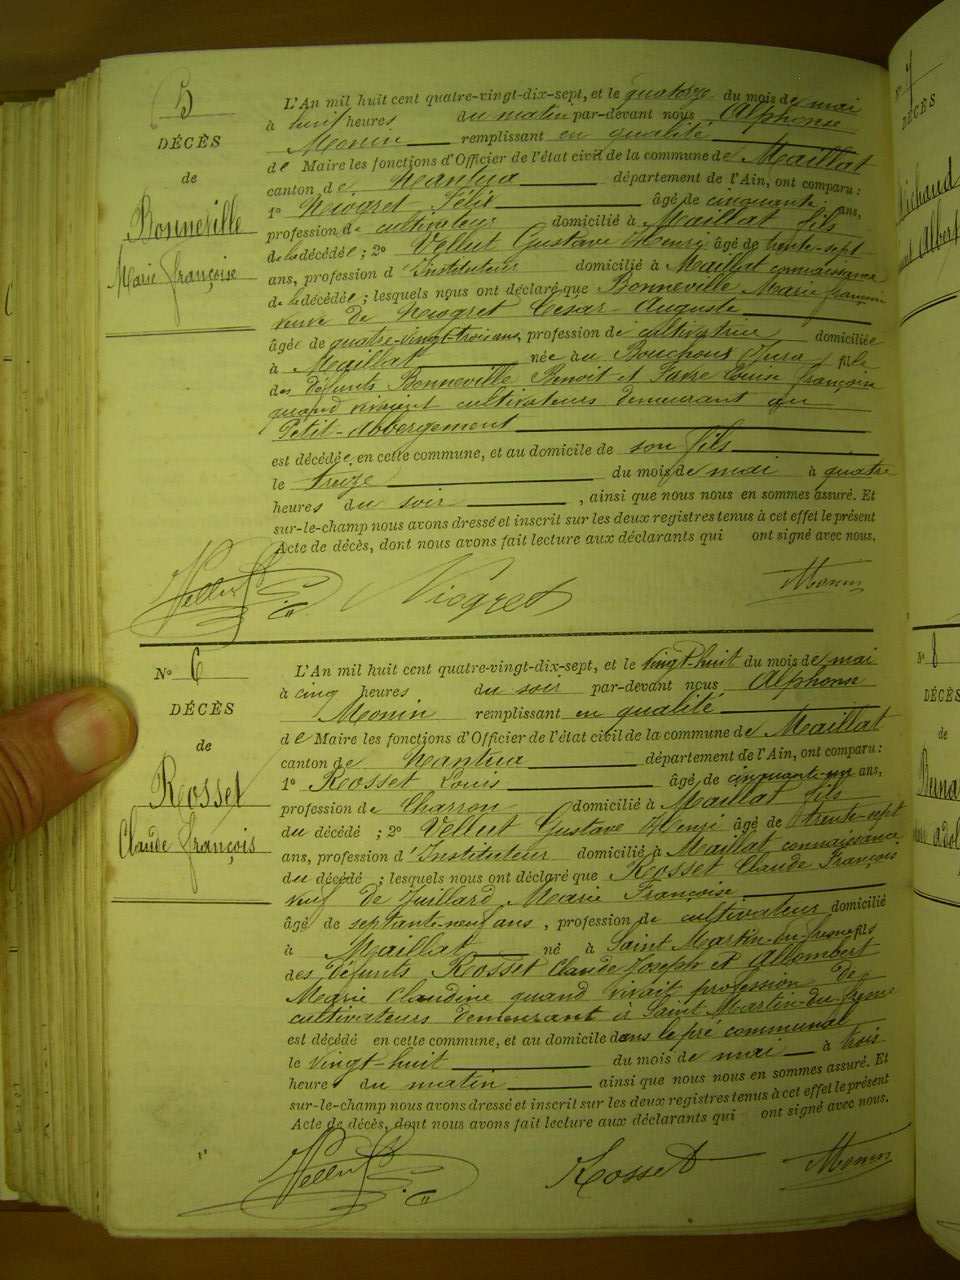 5
DÉCÈS
de
Bonneville
Marie françoise
L'An mil huit cent quatre-vingt-dix-sept, et le quatorze du mois de mai
à huit heures du matin par-devant nous Alphonse
Monin remplissant en qualité
de Maire les fonctions d'Officier de l'état civil de la commune de Maillat
canton de Nantua département de l'Ain, ont comparu :
1º Niogret Félix âgé de cinquante ans,
profession de cultivateur domicilié à Maillat fils
de la décédée ; 2º Vellut Gustave Henri âgé de trente-sept
ans, profession d'Instituteur domicilié à Maillat connaissance
de la décédée ; lesquels nous ont déclaré que Bonneville Marie françoise
veuve de Niogret César Auguste
âgée de quatre-vingt-trois ans, profession de cultivatrice domiciliée
à Maillat née au Bouchoux Jura fille
des défunts Bonneville Benoit et Favre Louise françoise
quand vivaient cultivateurs demeurant au
Petit-Abbergement
est décédée en cette commune, et au domicile de son fils
le treize du mois de mai à quatre
heures du soir , ainsi que nous nous en sommes assuré. Et
sur-le-champ nous avons dressé et inscrit sur les deux registres tenus à cet effet le présent
Acte de décès, dont nous avons fait lecture aux déclarants qui ont signé avec nous.
Vellut Niogret Monin
Nº 6
DÉCÈS
de
Rosset
Claude françois
L'An mil huit cent quatre-vingt-dix-sept, et le vingt-huit du mois de mai
à cinq heures du soir par-devant nous Alphonse
Monin remplissant en qualité
de Maire les fonctions d'Officier de l'état civil de la commune de Maillat
canton de Nantua département de l'Ain, ont comparu :
1º Rosset Louis âgé de cinquante-un ans,
profession de Charron domicilié à Maillat fils
du décédé ; 2º Vellut Gustave Henri âgé de trente-sept
ans, profession d'Instituteur domicilié à Maillat connaissance
du décédé ; lesquels nous ont déclaré que Rosset Claude François
veuf de Juillard Marie Françoise
âgé de septante-neuf ans, profession de cultivateur domicilié
à Maillat né à Saint Martin-du-fresne fils
des défunts Rosset Claude Joseph et Allombert
Marie Claudine quand vivait profession de
cultivateurs demeurant à Saint-Martin-du-fresne
est décédé en cette commune, et au domicile dans le pré communal
le vingt-huit du mois de mai à trois
heures du matin ainsi que nous nous en sommes assuré. Et
sur-le-champ nous avons dressé et inscrit sur les deux registres tenus à cet effet le présent
Acte de décès, dont nous avons fait lecture aux déclarants qui ont signé avec nous.
Vellut Rosset Monin
Nº 7
DÉCÈS
Albert
Nº 8
DÉCÈS
de